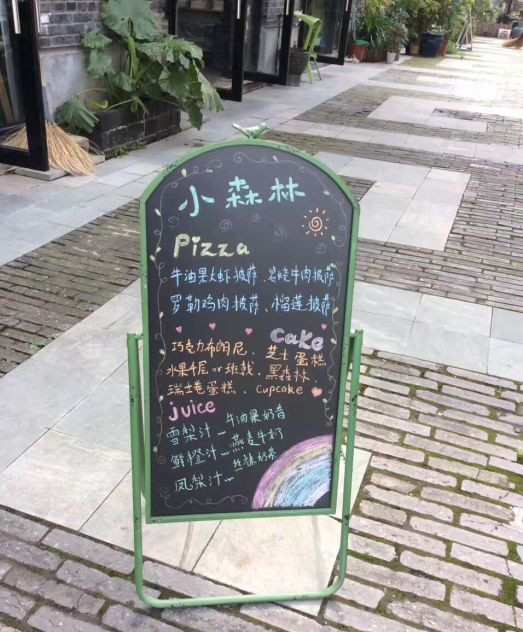 小森林
Pizza
牛油果大虾披萨、岩烧牛肉披萨
罗勒鸡肉披萨、榴莲披萨
Cake
巧克力布朗尼、芝士蛋糕
水果千层or班戟、黑森林、
瑞士卷蛋糕、Cupcake
juice
牛油果奶昔
雪梨汁
燕麦牛奶
鲜橙汁
丝袜奶茶
凤梨汁